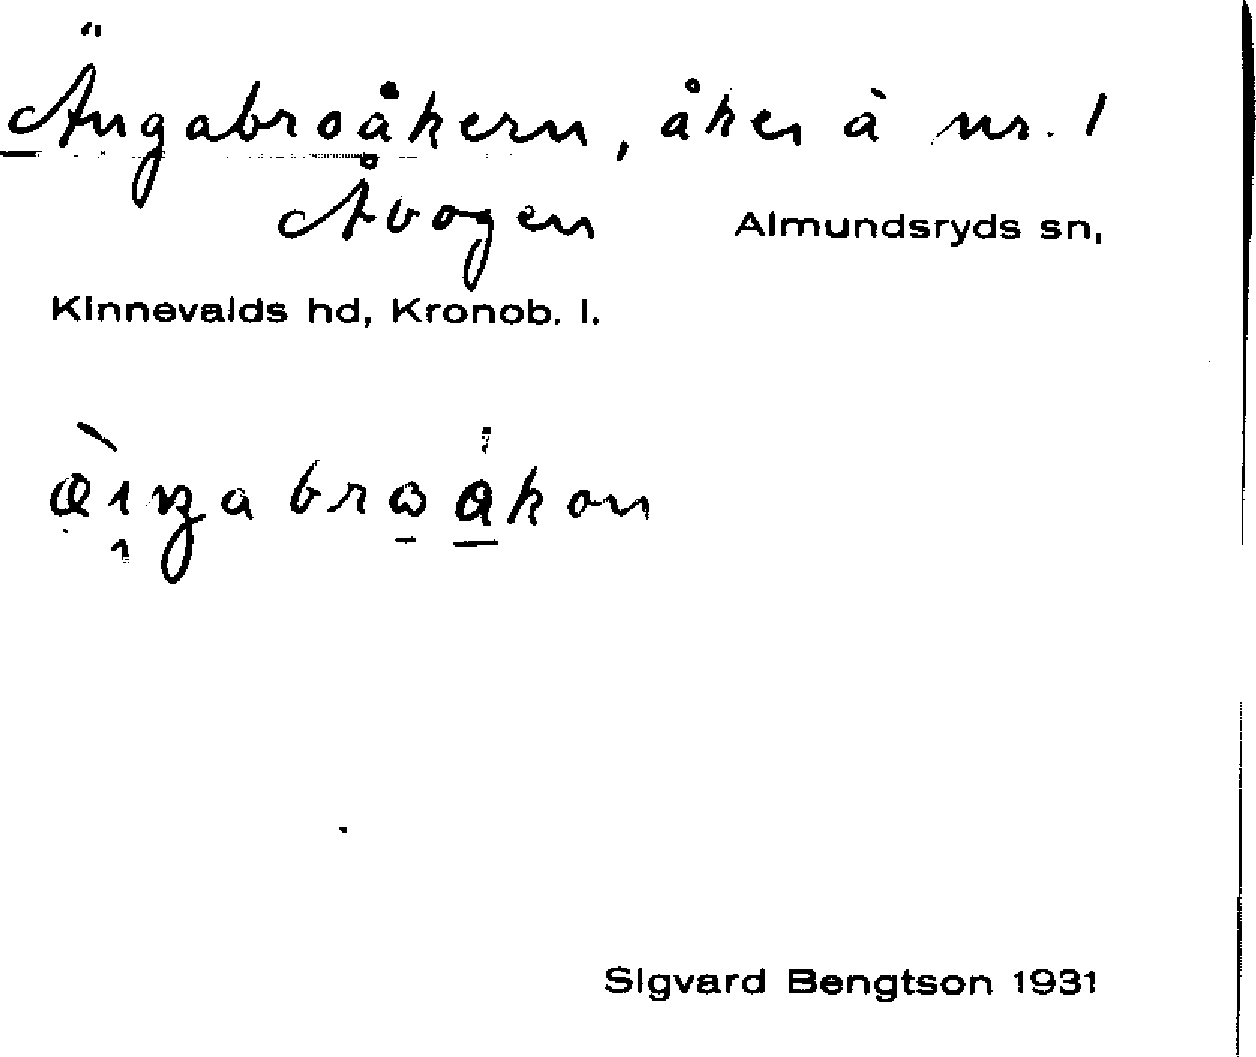 Ängabroåkern, åker à nr. 1
Åbogen Almundsryds sn,
Kinnevalds hd, Kronob. l.
Sigvard Bengtson 1931